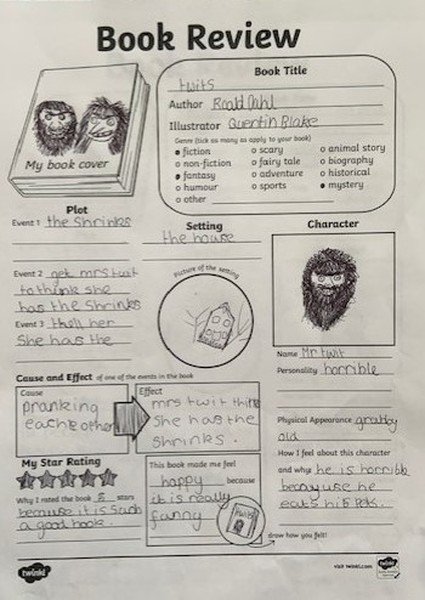 Book Review
My book cover
Book Title
twits
Author Roald Dahl
Illustrator Quentin Blake
Genre (tick as many as apply to your book)
fiction
non-fiction
fantasy
humour
other
scary
fairy tale
adventure
sports
animal story
biography
historical
mystery
Plot
Event 1 the shrinks
Event 2 get mrs twit
to think she
has the shrinks
Event 3 tell her
she has the
Setting
the house
Picture of the setting
Character
Name Mr twit
Personality horrible
Physical Appearance grubby
old
How I feel about this character
and why he is horrible
because he
eats his pets.
Cause and Effect of one of the events in the book
Cause
pranking
each other
Effect
mrs twit thinks
she has the
shrinks.
My Star Rating
Why I rated the book 5 stars
because it is such
a good book
This book made me feel
happy because
it is really
funny
draw how you felt!
twinkl
visit twinkl.com
twinkl